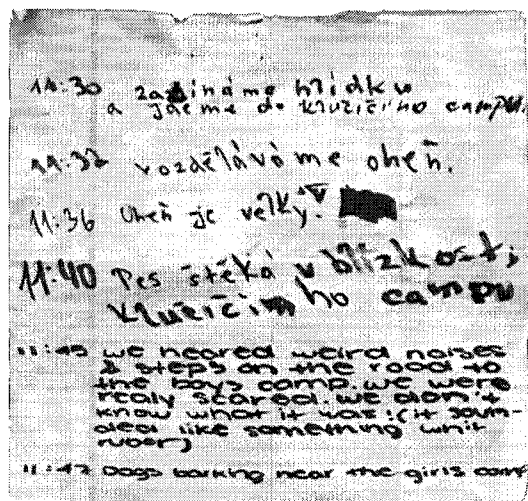 11:30 začínáme hlídku
a jdeme do klučičího campu.
11:32 rozděláváme oheň.
11:36 Oheň je velký.
11:40 Pes štěká v blízkosti
klučičího campu
11:45 we heared weird noises
& steps on the road to
the boys camp. we were
realy scared. we didn't
know what it was :( it soun-
ded like something
11:47 Dogs barking near the girls camp